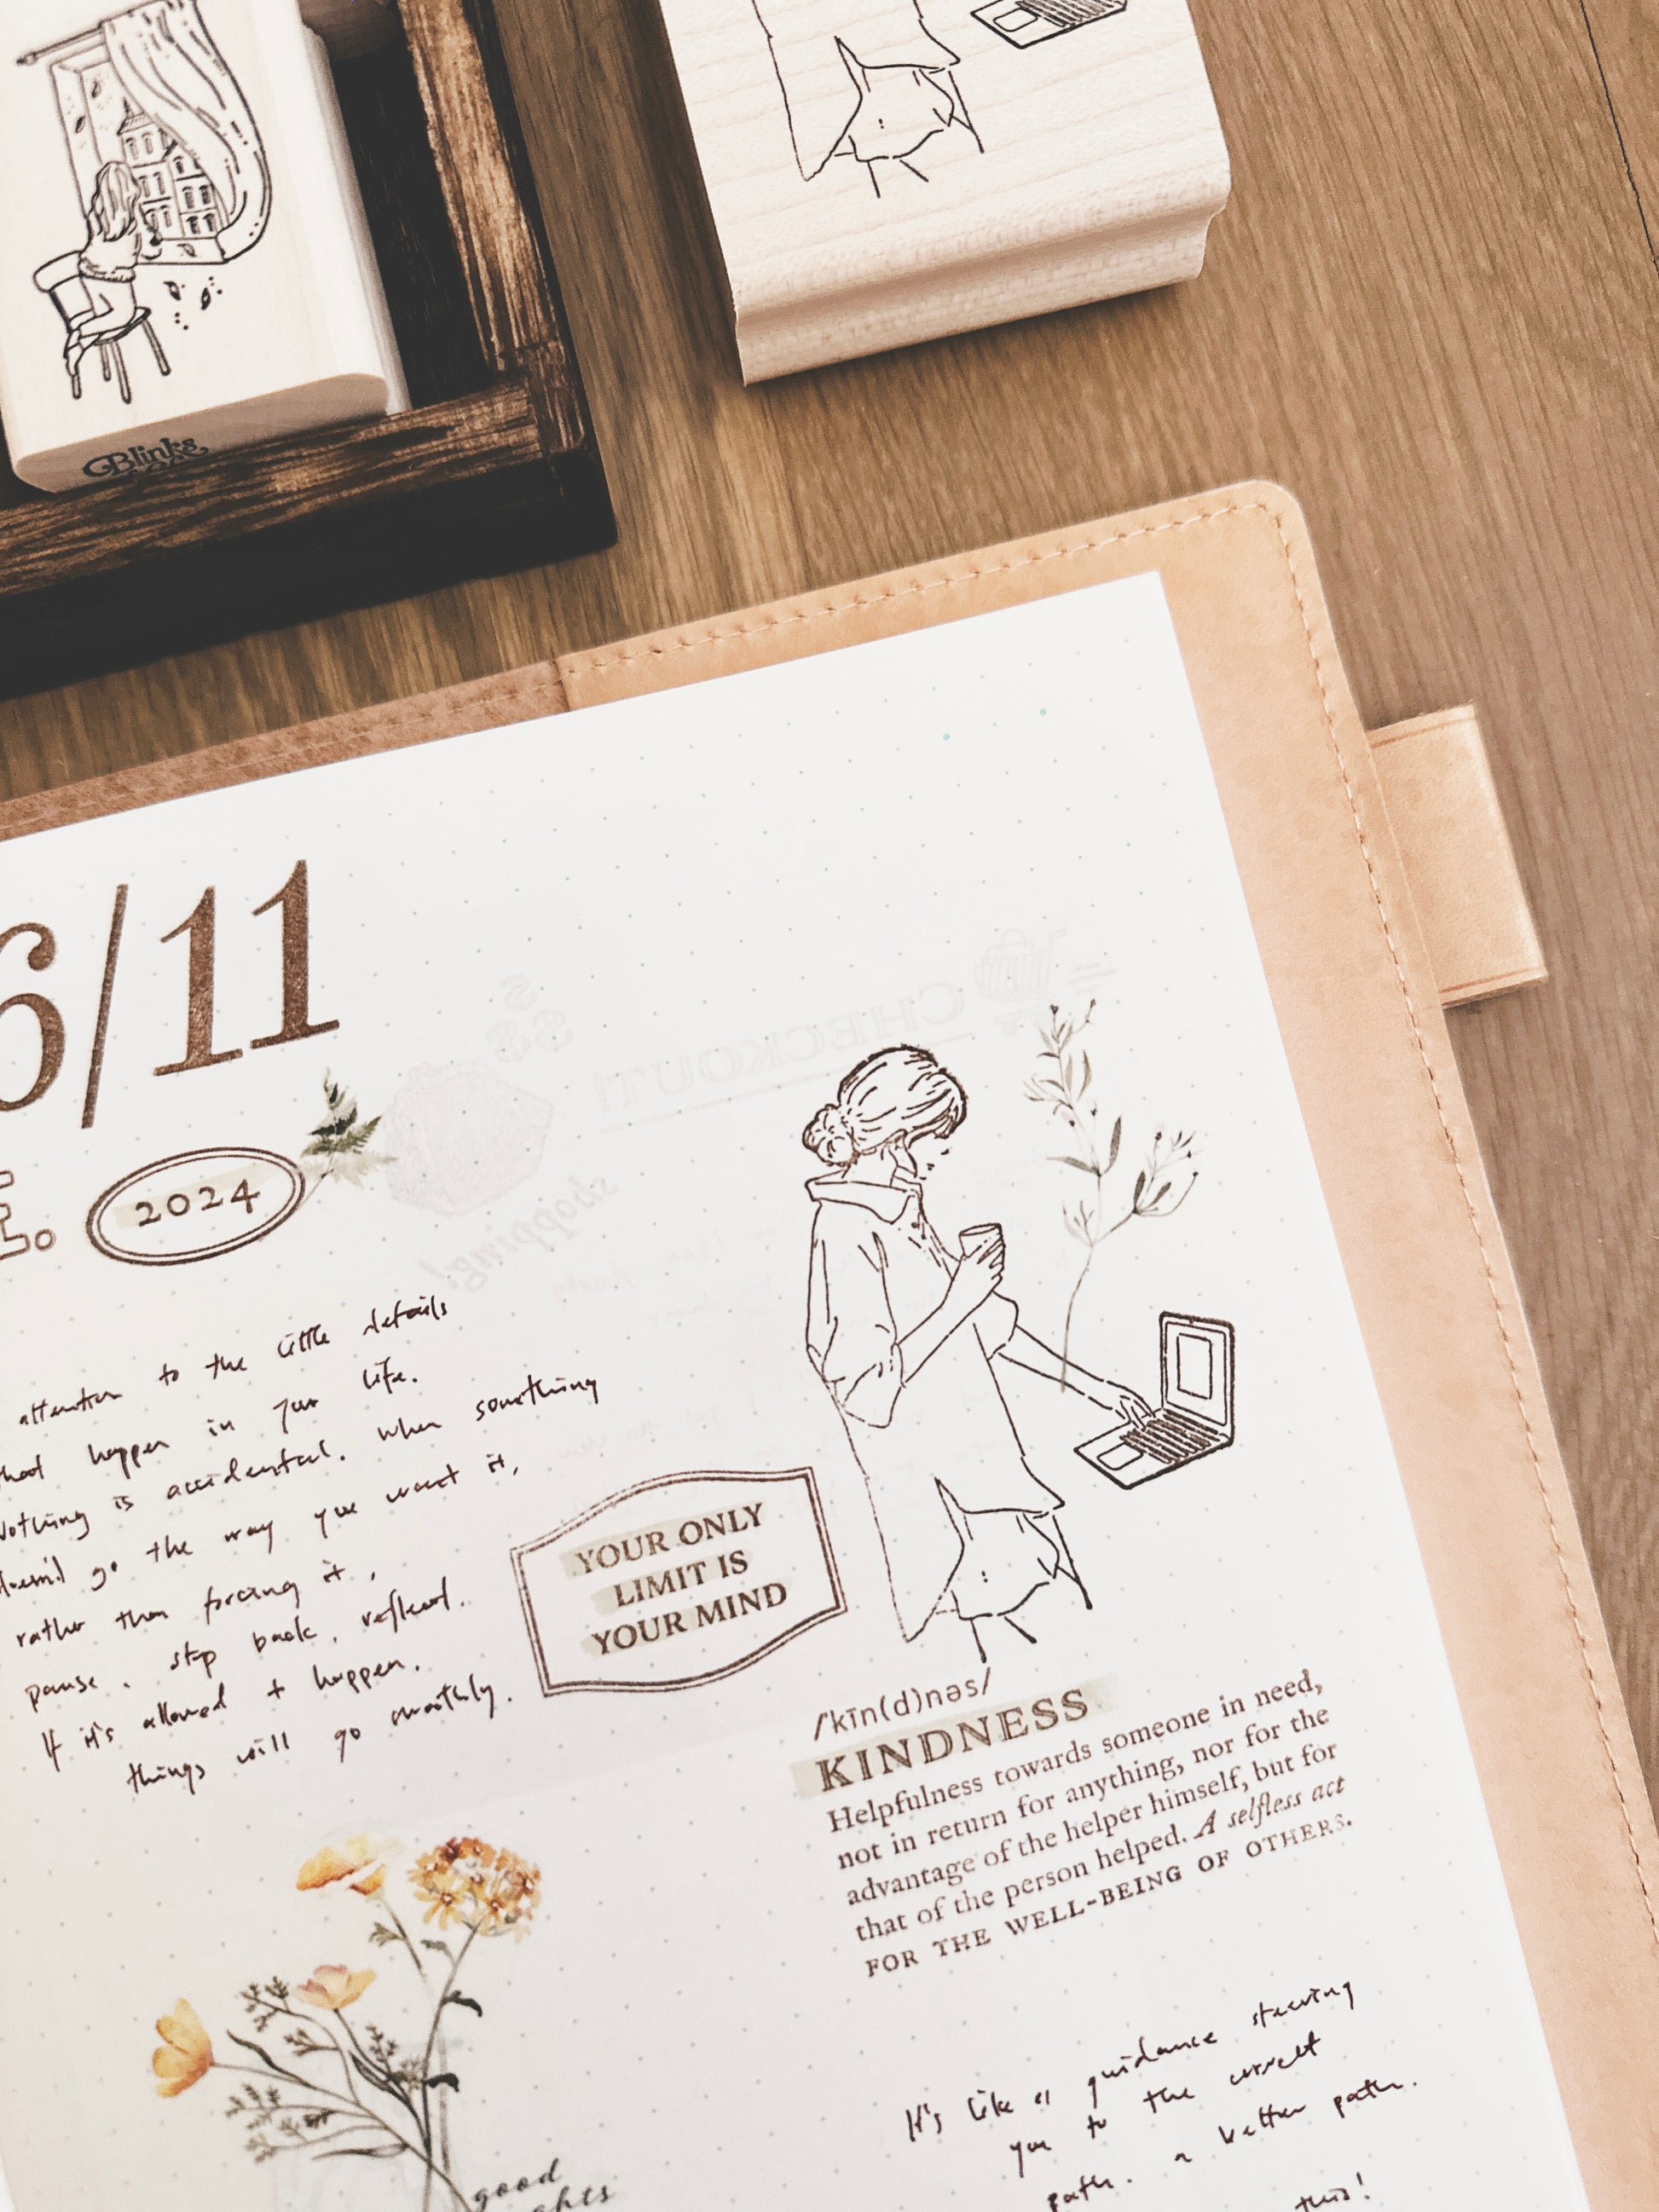 Blinks
6/11
E.
2024
attention to the little details
that happen in your life.
Nothing is accidental. When something
doesn't go the way you want it,
rather than forcing it,
pause. step back. reflect.
If it's allowed to happen.
things will go smoothly.
YOUR ONLY
LIMIT IS
YOUR MIND
/'kīn(d)nəs/
KINDNESS
Helpfulness towards someone in need,
not in return for anything, nor for the
advantage of the helper himself, but for
that of the person helped. A selfless act
FOR THE WELL-BEING OF OTHERS.
It's like a guidance steering
you to the correct
path. a better path.
this!
good
CHECKOUT!
shopping!